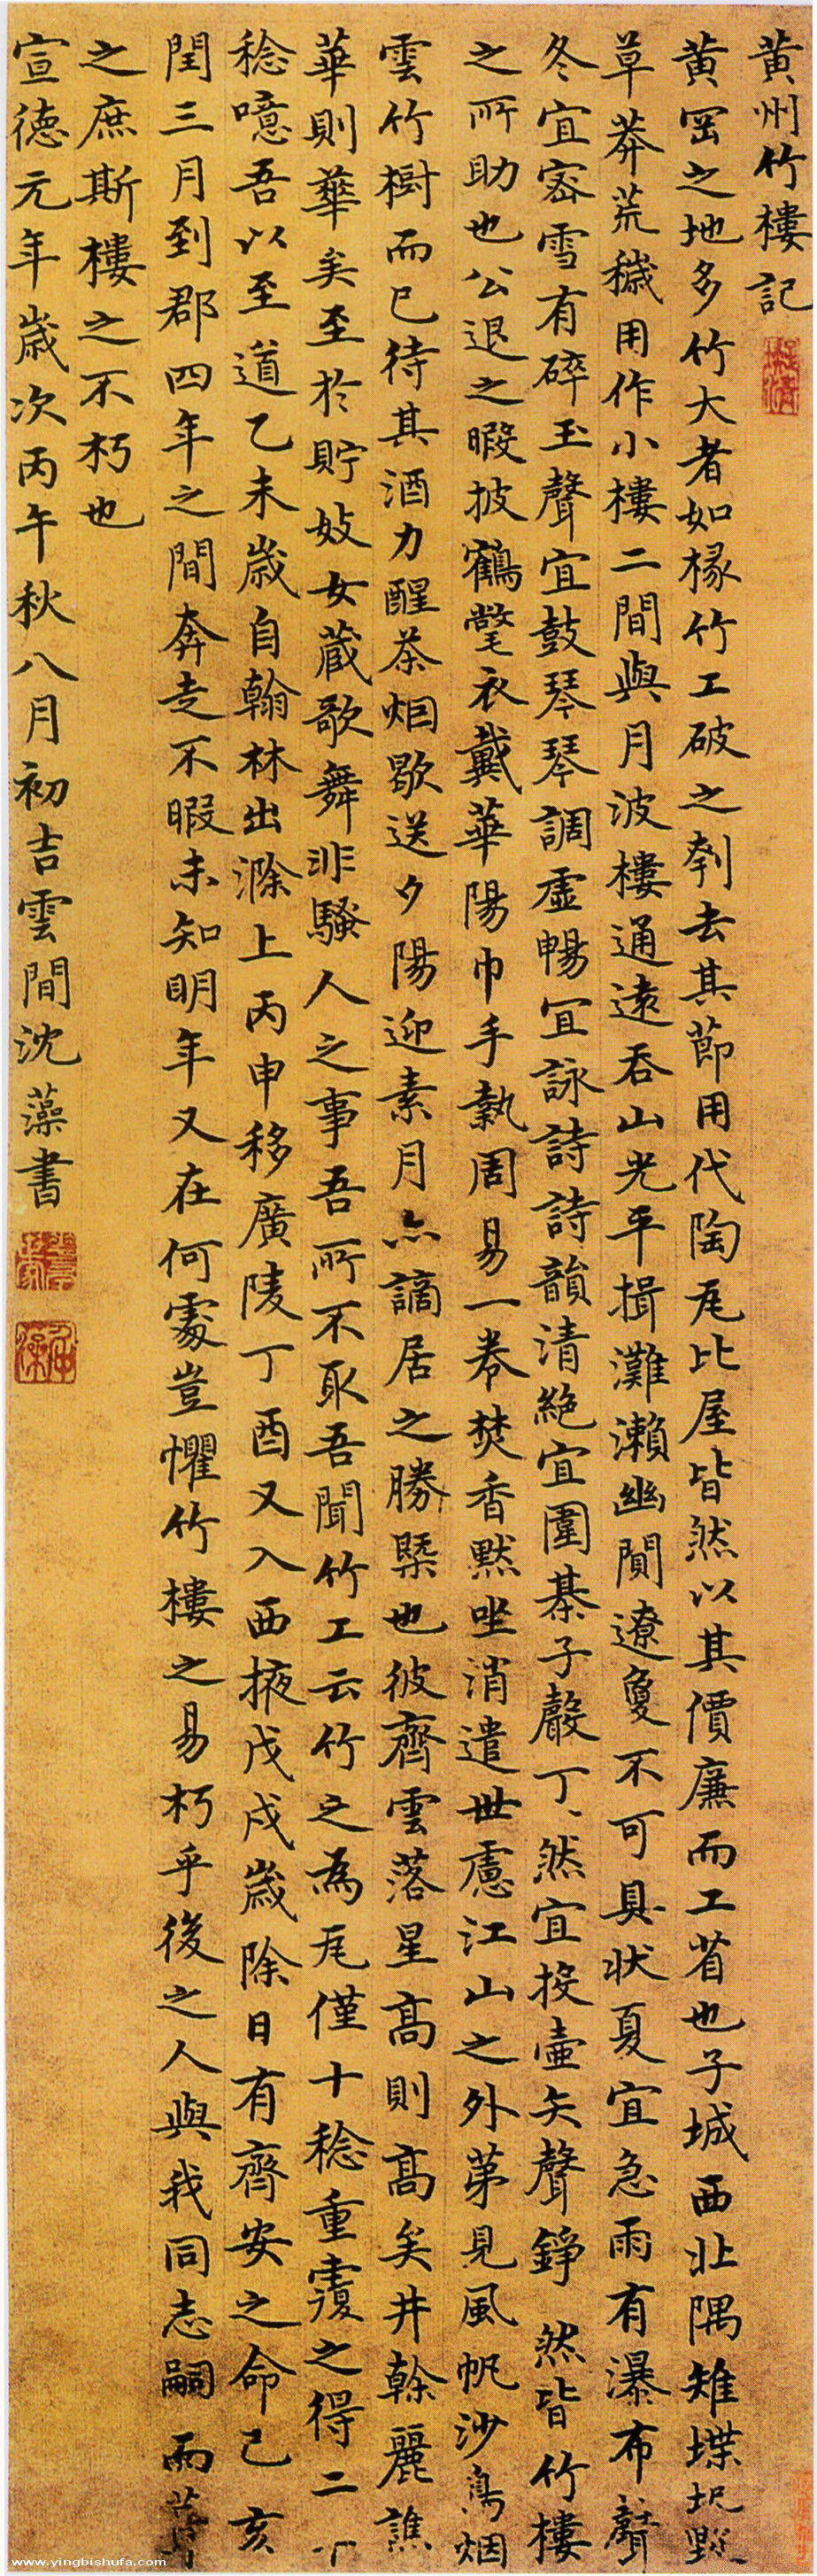 黄州竹樓記
黄岡之地多竹大者如椽竹工破之刳去其節用代陶瓦比屋皆然以其價廉而工省也子城西北隅雉堞圮毀
草莽荒穢用作小樓二間與月波樓通遠吞山光平揖灘瀨幽閴遼夐不可具狀夏宜急雨有瀑布聲
冬宜密雪有碎玉聲宜鼓琴琴調虛暢宜詠詩詩韻清絶宜圍棊子聲丁丶然宜投壺矢聲錚 然皆竹樓
之所助也公退之暇披鶴氅衣戴華陽巾手執周易一卷焚香默坐消遣世慮江山之外第見風帆沙鳥烟
雲竹樹而已待其酒力醒茶烟歇送夕陽迎素月亦謫居之勝槩也彼齊雲落星高則高矣井幹麗譙
華則華矣至於貯妓女藏歌舞非騷人之事吾所不取吾聞竹工云竹之為瓦僅十稔重覆之得二十
稔噫吾以至道乙未歲自翰林出滁上丙申移廣陵丁酉又入西掖戊戌歲除日有齊安之命己亥
閏三月到郡四年之間奔走不暇未知明年又在何處豈懼竹樓之易朽乎後之人與我同志嗣而葺
之庶斯樓之不朽也
宣德元年歲次丙午秋八月初吉雲間沈藻書
www.yingbishufa.com